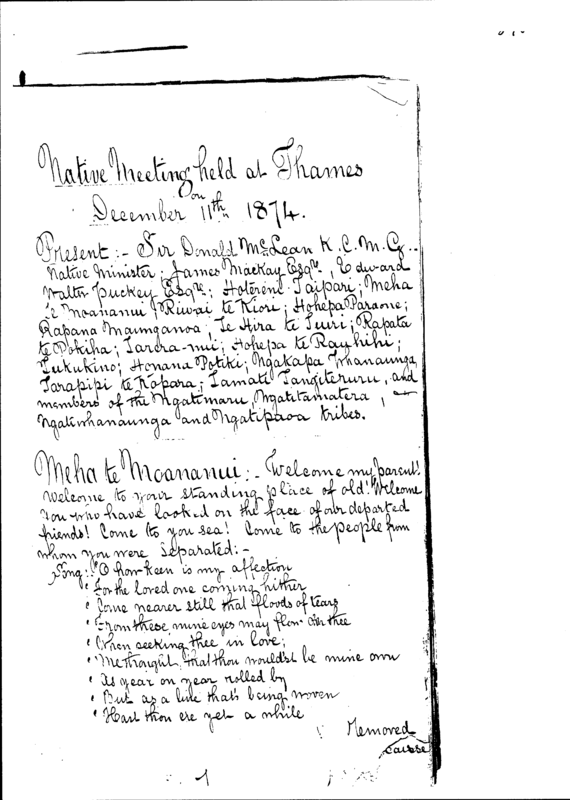 Native Meeting held at Thames
on
December 11th 1874.
Present :- Sir Donald McLean K. C. M. G.
Native Minister; James Mackay Esqre, Edward
Walter Puckey Esqre; Hoterene Taipari; Meha
te Moananui; Riwai te Kiori; Hohepa Paraone;
Rapana Maunganoa; Te Hira te Tuiri; Rapata
te Pokiha; Tarera-nui; Hohepa te Rauhihi;
Tukukino; Honana Potiki; Ngakapa Whanaunga,
Tarapipi te Kopara; Tamati Tangiteruru, and
members of the Ngatimaru, Ngatitamatera,
Ngatiwhanaunga and Ngatipaoa tribes.
Meha te Moananui :- Welcome my parent!
Welcome to your standing place of old! Welcome
You who have looked on the face of our departed
friends! Come to you sea! Come to the people from
whom you were separated:-
Song:- "O how keen is my affection
"For the loved one coming hither
"Come nearer still that floods of tears
"From these mine eyes may flow o'er thee
"When seeking thee in love;
"Methought that thou would'st be mine own
"As year on year rolled by
"But as a line that's being woven
"Hast thou ere yet a while
Removed
1